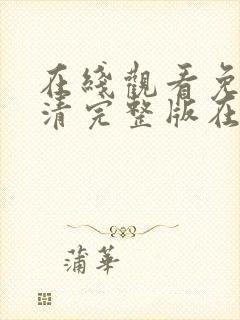 在綫觀看免
清完整版在
蒲華